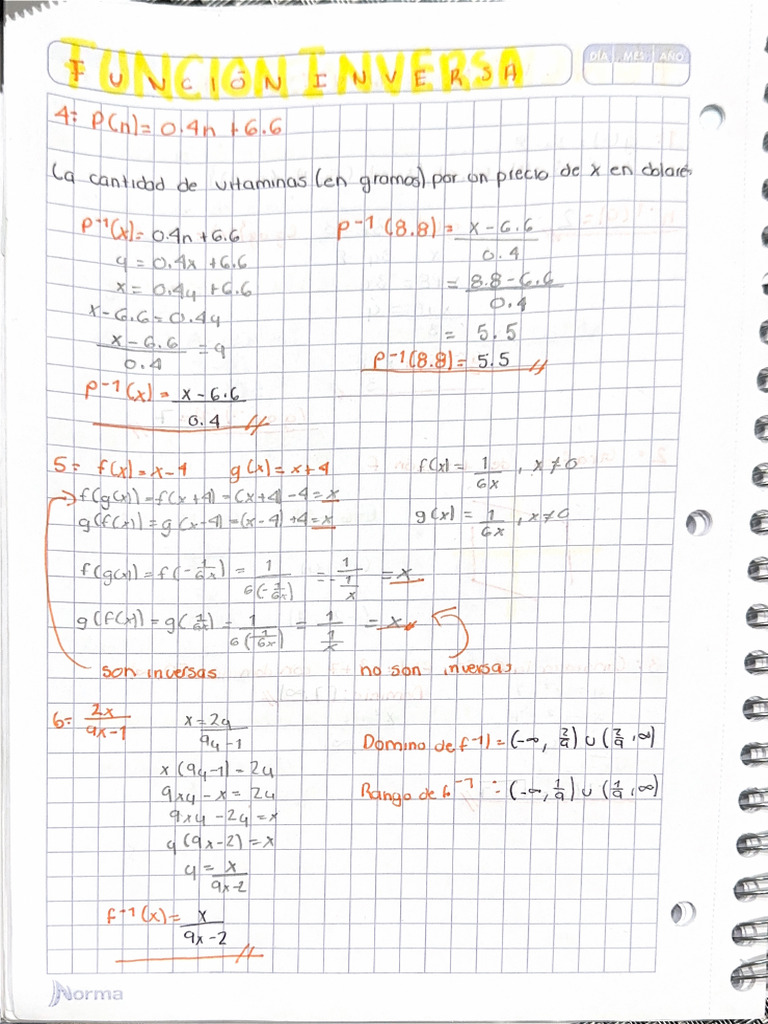 FUNCIÓN INVERSA
DÍA MES AÑO
4= P(n)= 0.4n + 6.6
La cantidad de vitaminas (en gramos) por un precio de x en dolares
P⁻¹(x)= 0.4n + 6.6
y = 0.4x + 6.6
x = 0.4y + 6.6
x - 6.6 = 0.4y
x - 6.6 / 0.4 = y
P⁻¹(x) = x - 6.6 / 0.4 //
P⁻¹(8.8) = x - 6.6 / 0.4
= 8.8 - 6.6 / 0.4
= 5.5
P⁻¹(8.8) = 5.5 //
5= f(x) = x - 4 g(x) = x + 4
f(g(x)) = f(x + 4) = (x + 4) - 4 = x
g(f(x)) = g(x - 4) = (x - 4) + 4 = x
f(x) = 1 / 6x , x ≠ 0
g(x) = 1 / 6x , x ≠ 0
f(g(x)) = f(- 1/6x) = 1 / 6(- 1/6x) = - 1 / 1/x = x
g(f(x)) = g(1/6x) = 1 / 6(1/6x) = 1 / 1/x = x
son inversas no son inversas
6= 2x / 9x - 1
x = 2y / 9y - 1
x (9y - 1) = 2y
9xy - x = 2y
9xy - 2y = x
y (9x - 2) = x
y = x / 9x - 2
f⁻¹(x) = x / 9x - 2 //
Domino de f⁻¹) = (-∞, 2/9) ∪ (2/9, ∞)
Rango de 6⁻¹ = (-∞, 1/9) ∪ (1/9, ∞)
Norma